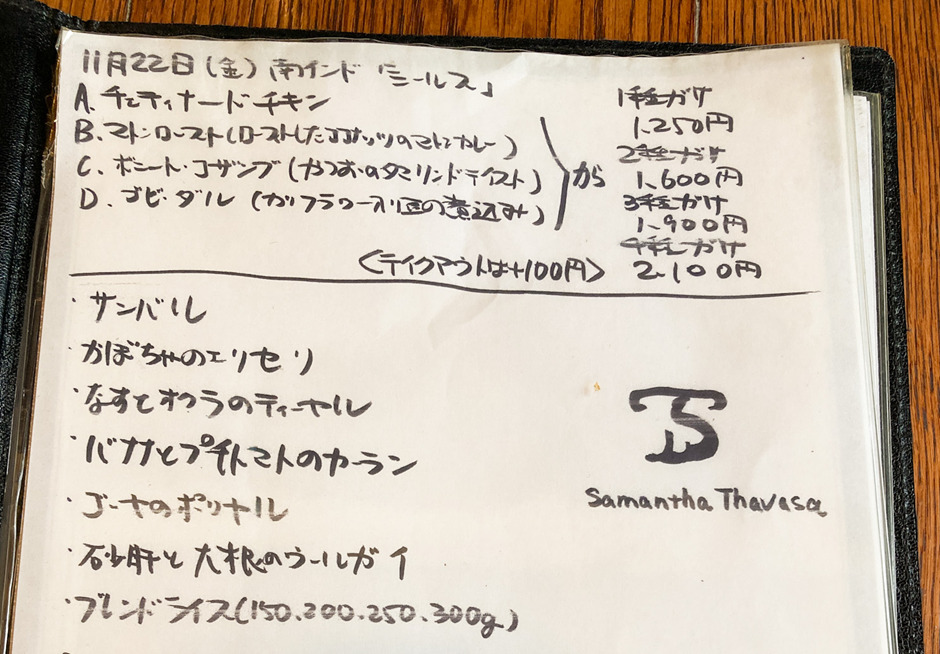 11月22日(金) 南インド「ミールス」
A. チェティナードチキン
B. マトンロースト(ローストしたココナッツのマトンカレー)
C. ボニート・コザンブ(かつおのタマリンドテイスト)
D. ゴビ・ダル (カリフラワーと豆の煮込み)
から
1種がけ
1,250円
2種がけ
1,600円
3種がけ
1,900円
4種がけ
2,100円
<テイクアウトは+100円>
・サンバル
・かぼちゃのエリセリ
・なすとオクラのティーヤル
・バナナとプチトマトのカーラン
・ゴーヤのポリヤル
・砂肝と大根のウールガイ
・ブレンドライス(150.200.250.300g)
TS
Samantha Thavasa